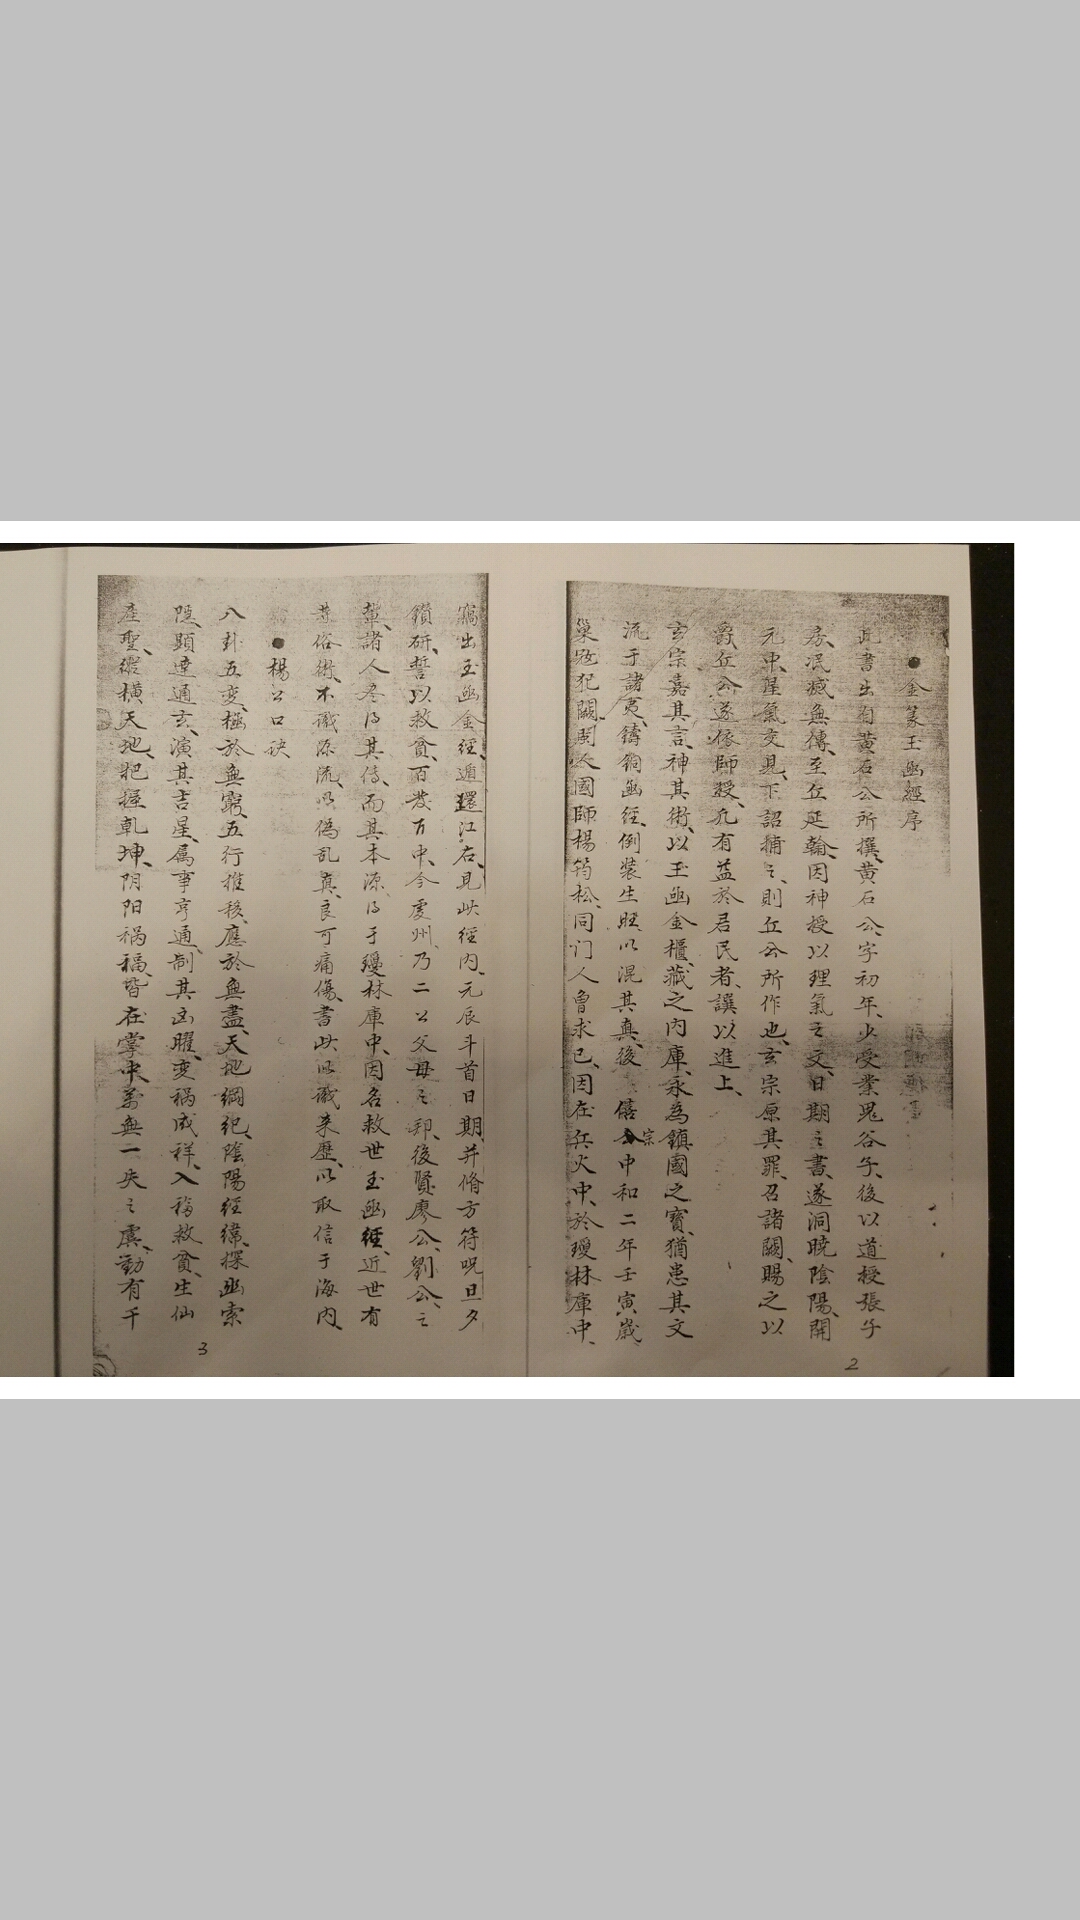 ●金篆玉函經序
此書出自黃石公所撰、黃石公字初年、少受業鬼谷子、後以道授張子
房、泯滅無傳、至丘延翰、因神授以理氣之文、日期之書、遂洞曉陰陽、開
元中、星氣交見、下詔捕之、則丘公所作也、玄宗原其罪、召諸闕、賜之以
爵、丘公遂依師授、凡有益於君民者、譔以進上、
玄宗嘉其言、神其術、以玉函金櫃、藏之内庫、永為鎮國之寶、猶患其文
流于諸夷、鑄銅函經、倒裝生旺、以混其真、後僖宗中和二年壬寅歲
巢犯闕、國師楊筠松、同门人曾求已、因在兵火中、於瓊林庫中、
竊出玉函金經、遁還江右、見此經内、元辰斗首日期、并脩方符呪、旦夕
鑽研、誓以救貧、百發百中、今虔州、乃二公父母之邦、後賢廖公、劉公、之
輩、諸人尽得其傳、而其本源、得于瓊林庫中、因名救世玉函經、近世有
等俗術、不識源流、以偽乱真、良可痛傷、書此以識來歷、以取信于海内、
●楊公口訣
八卦五变、極於無窮、五行推移、應於無盡、天地綱紀、陰陽經緯、探幽索
隱、顯達通玄、演其吉星、属事亨通、制其凶曜、变禍成祥、入福救貧、生仙
產聖、縱橫天地、把握乹坤、阴阳禍福、皆在掌中、萬無一失之虞、動有千
3
2